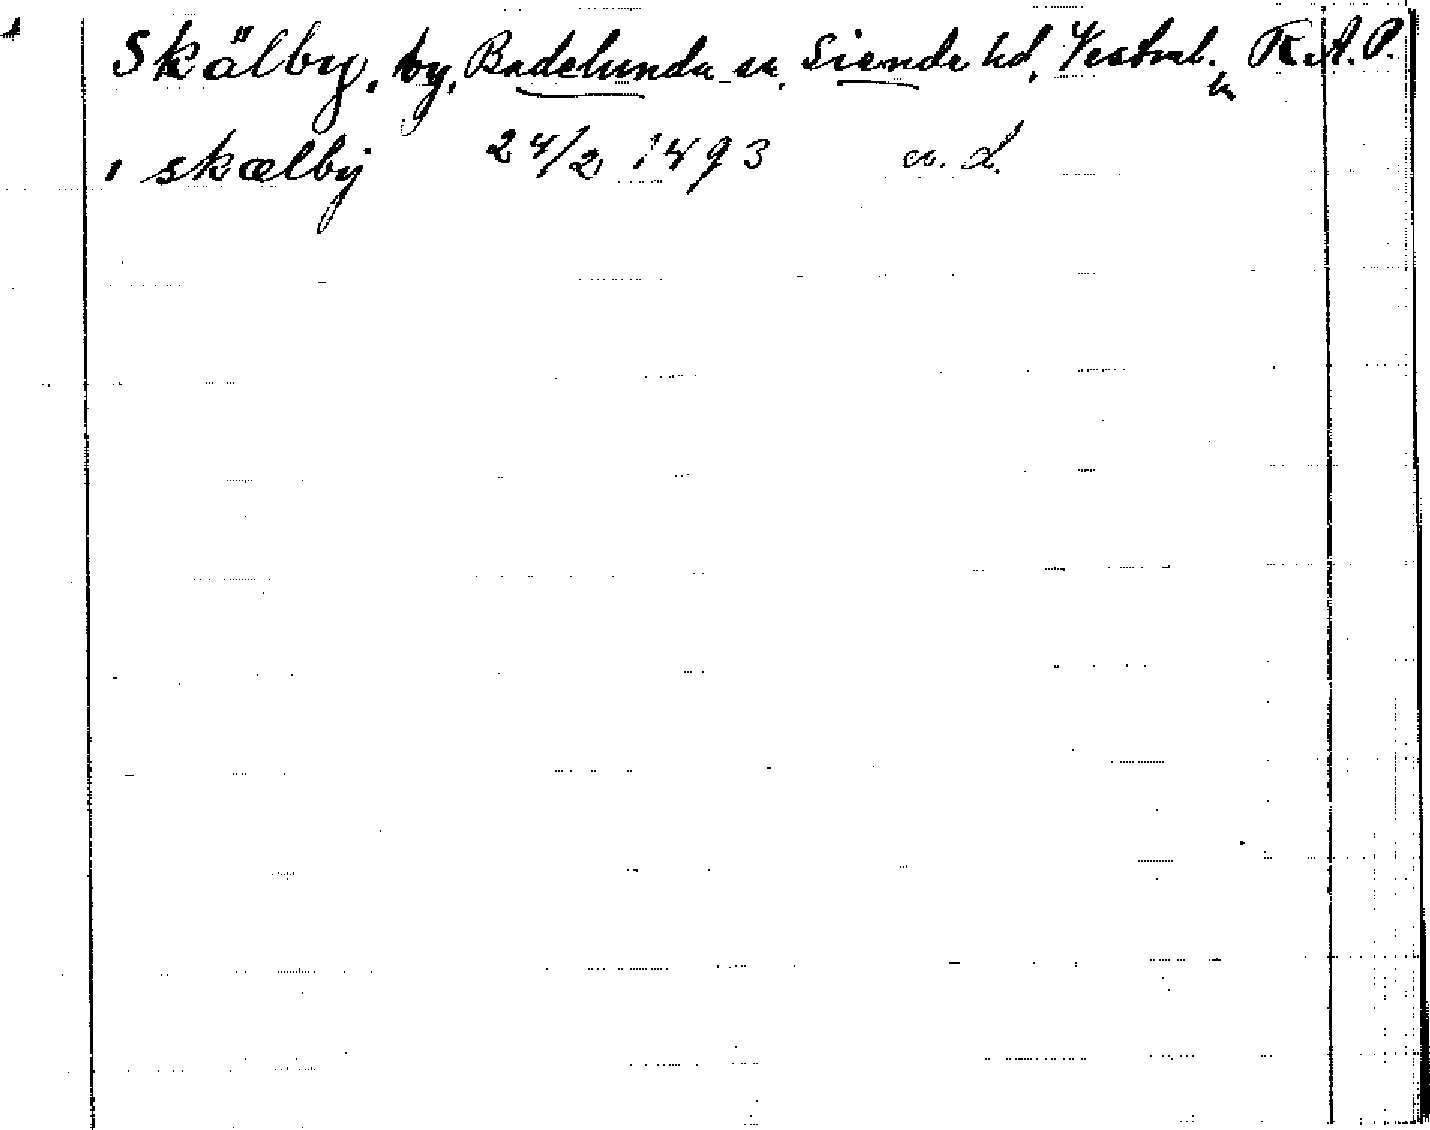 Skälby, by, Badelunda sn, Siende hd, Vestml. ln R.A.P.
i skælby 24/2 1493 a. L.